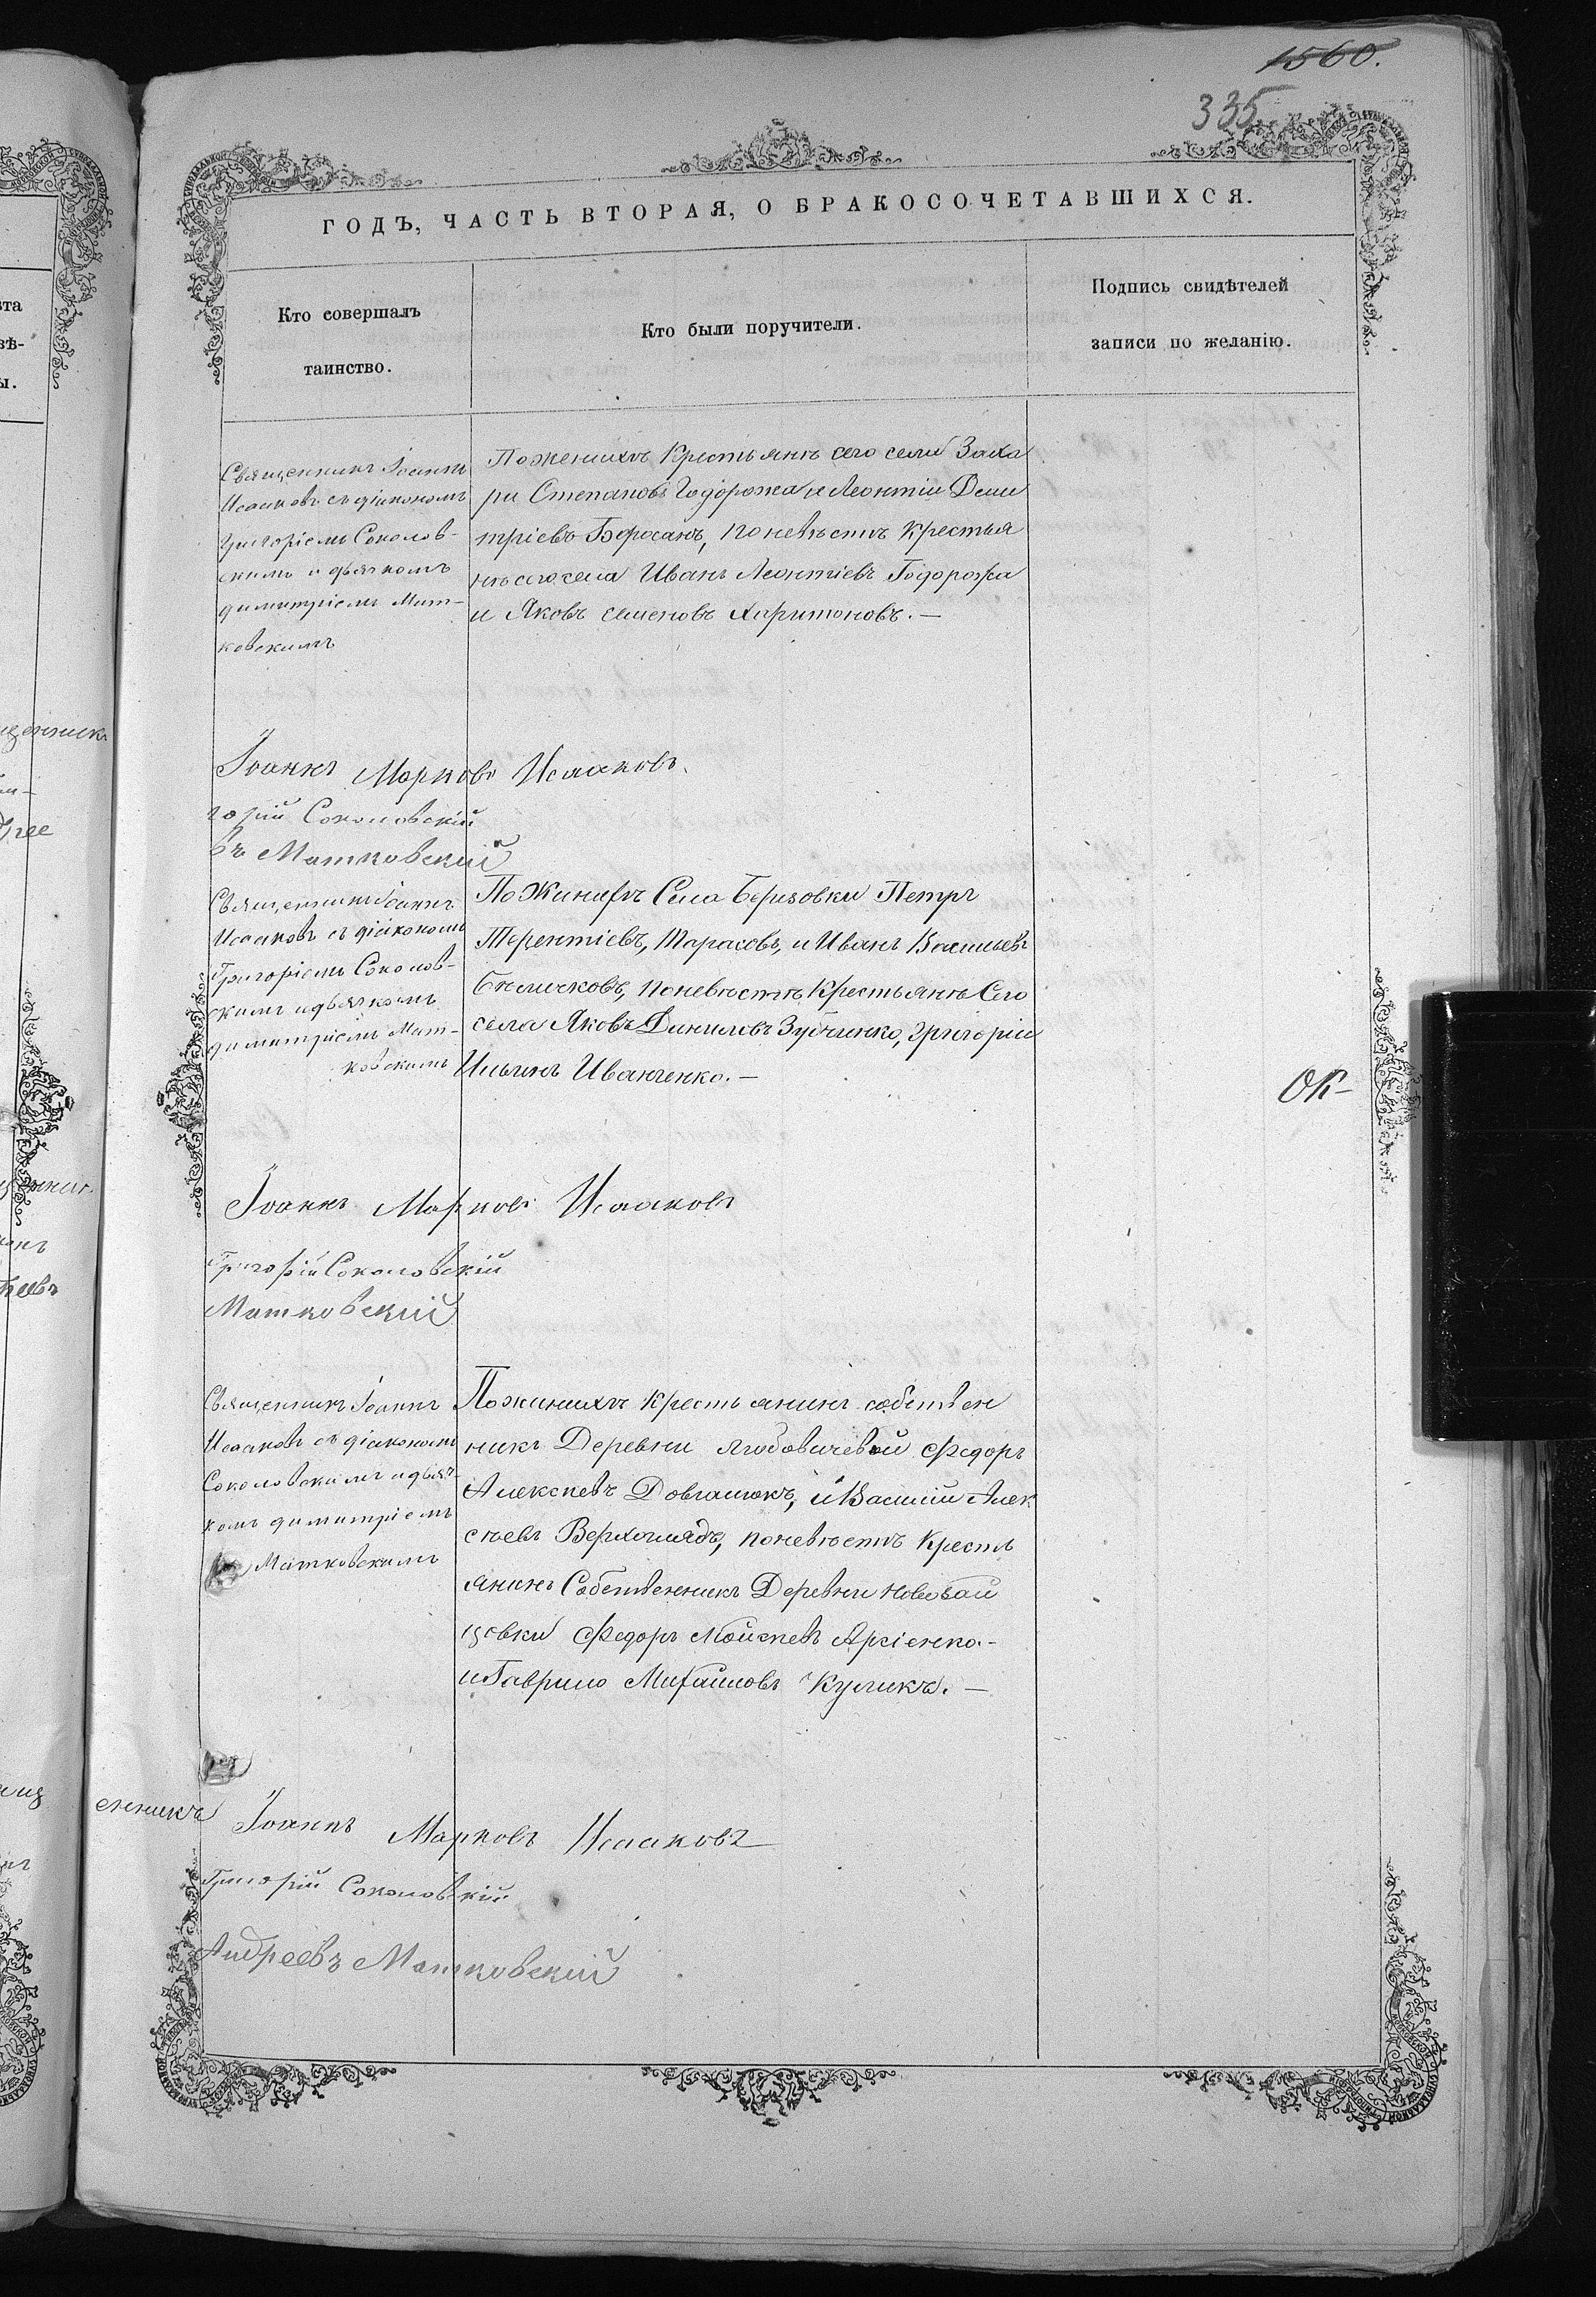 1560.
335
ГОДЪ, ЧАСТЬ ВТОРАЯ, О БРАКОСОЧЕТАВШИХСЯ.
Кто совершалъ
таинство.
Кто были поручители.
Подпись свидѣтелей
записи по желанію.
Священникъ Іоаннъ
Исааковъ съ діакономъ
Григоріемъ Соколов-
скимъ и дьячкомъ
димитріемъ Мат-
ковскимъ
По женихѣ Крестьянѣ сего села Заха
ри Степановъ Годорожа и Леонтіи Деми
тріевъ Бофосанъ, по невѣстѣ Крестья
нѣ сего села Иванъ Леонтіевъ Годорожа
и Яковъ семеновъ Харитоновъ. —
Іоаннъ Марковъ Исааковъ.
горій Соколовскій
въ Матковский
Священникъ Іоаннъ
Исааковъ съ діакономъ
Григоріемъ Соколов-
скимъ и дьячкомъ
димитріемъ Мат-
ковскимъ
По Жинихѣ Села Беризовки Петръ
Терентіевъ, Тарасовъ, и Иванъ Васильевъ
Бѣличковъ, по невѣстѣ Крестьянѣ Сего
села Яковъ Даниловъ Зубченко, Григоріи
Ильинъ Иванченко. —
ОК-
Іоаннъ Марковъ Исааковъ
Григорій Соколовскій
Матковский
Священникъ Іоаннъ
Исааковъ съ діакономъ
Соколовскимъ и дьяч-
комъ димитріемъ
Матковскимъ
По жинихѣ крестьянинъ собствен
никъ Деревни Федоръ
Алексѣевъ Довгалюкъ, и Василій Алек
сѣевъ Верхоглядъ, по невѣстѣ Кресть
янинъ Собственникъ Деревни Новобай
цовки Федоръ Моисѣевъ Арсіенко. -
и Гаврило Михайловъ Куликъ. —
енникъ Іоаннъ Марковъ Исааковъ
Григорій Соколовскій
Андреевъ Матковский